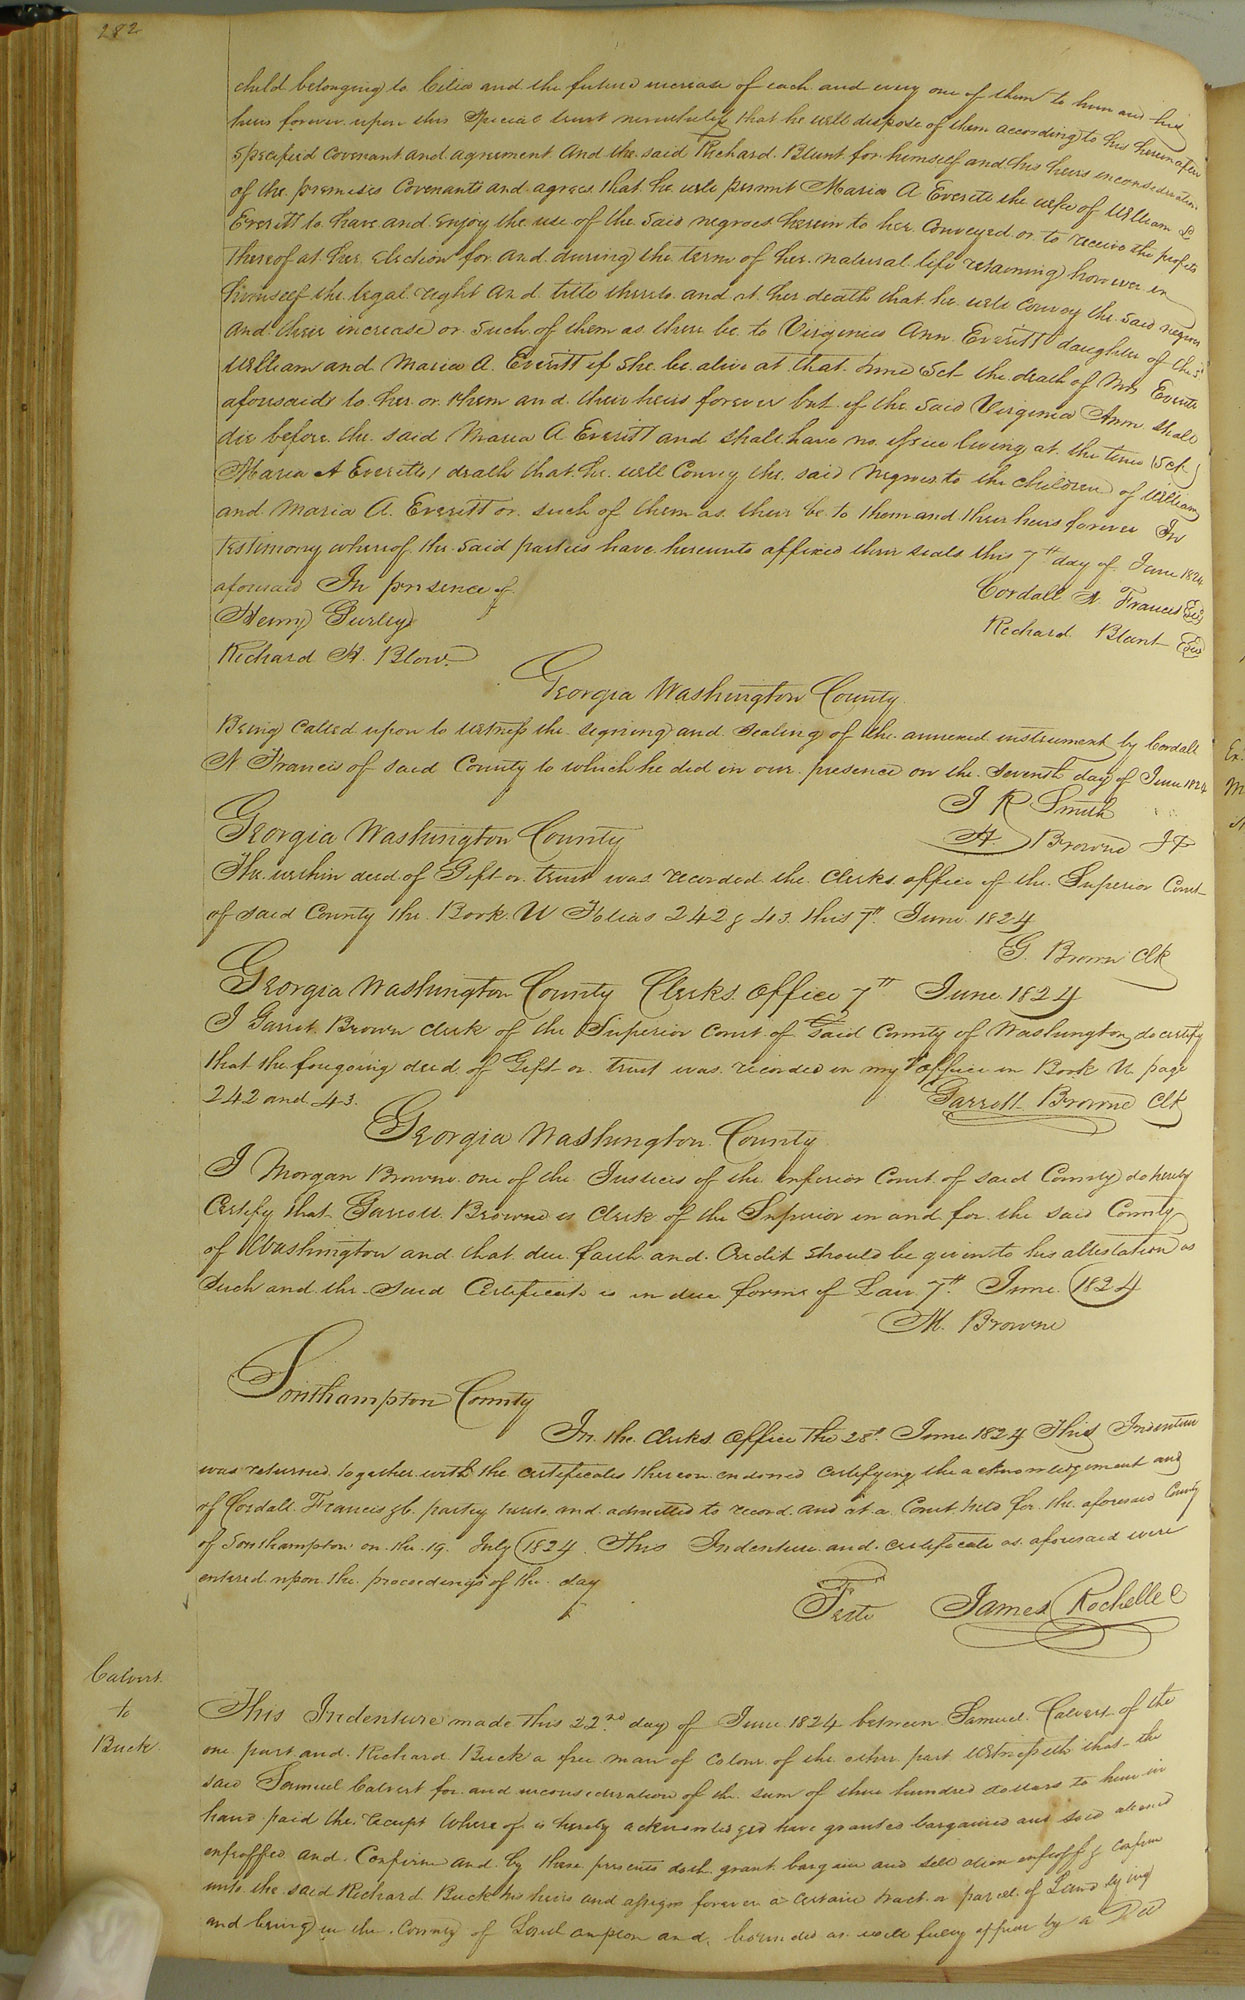 282
child belonging to Celia and the future increase of each and every one of them to him and his
heirs forever upon this Special trust nevertheless that he will dispose of them according to his herein after
specified Covenant and agreement And the said Richard Blunt for himself and his heirs in consideration
of the premises Covenants and agrees that he will permit Maria A Everitt the wife of William
Everitt to have and enjoy the use of the said negroes herein to her Conveyed or to receive the profits
thereof at her election for and during the term of her natural life retaining however in
himself the legal right and title thereto and at her death that he will convey the said negroes
and their increase or such of them as there be to Virginia Ann Everitt daughter of the sd
William and Maria A. Everitt if she be alive at that time Sct the death of Mrs Everitt
aforesaid to her or them and their heirs forever but if the said Virginia Ann shall
die before the said Maria A Everitt and shall have no issue living at the time (Sct
Maria A Everitts) death that he will Convey the said Negroes to the children of William
and Maria A. Everitt or such of them as their be to them and their heirs forever In
testimony whereof the said parties have hereunto affixed their seals this 7th day of June 1824
aforesaid In presence of
Cordall N. Francis
Henry Gurley
Richard Blunt
Richard H. Blow
Georgia Washington County
Being Called upon to witness the signing and sealing of the annexed instrument by Cordall
N Francis of said County to which he did in our presence on the seventh day of June 1824
J R Smith
Georgia Washington County
A. Browne JP
The within deed of Gift or trust was recorded the Clerks office of the Superior Court
of said County the Book U Folios 242 & 43 this 7th June 1824
G. Brown Clk
Georgia Washington County Clerks office 7th June 1824
I Garret Brown clerk of the Superior Court of Said County of Washington do certify
that the foregoing deed of Gift or trust was recorded in my office in Book U page
242 and 43.
Garrett Browne Clk
Georgia Washington County
I Morgan Browne one of the Justices of the inferior Court of said County do hereby
Certify that Garrett Browne is Clerk of the Superior in and for the said County
of Washington and that due faith and Credit should be given to his attestation as
such and the said Certificate is in due forme of Law 7th June 1824
M. Browne
Southampton County
In the Clerks office the 28th June 1824 This Indenture
was returned together with the certificates thereon endorsed certifying the acknowledgement and
of Cordall Francis partey hereto and admitted to record and at a Court held for the aforesaid County
of Southampton on the 19 July 1824 This Indenture and certificate as aforesaid were
entered upon the proceedings of the day
Teste James Rochelle C
Calvert
to
Buck
This Indenture made this 22nd day of June 1824 between Samuel Calvert of the
one part and Richard Buck a free man of Colour of the other part Witnesseth that the
said Samuel Calvert for and in consideration of the sum of three hundred dollars to him in
hand paid the receipt whereof is hereby acknowledged have granted bargained and sold aliened
enfeoffed and Confirm and by these presents doth grant bargain and sell alien enfeoff & confirm
unto the said Richard Buck his heirs and assigns forever a certain tract or parcel of Land lying
and being in the County of Southampton and bounded as will fully appear by a Deed